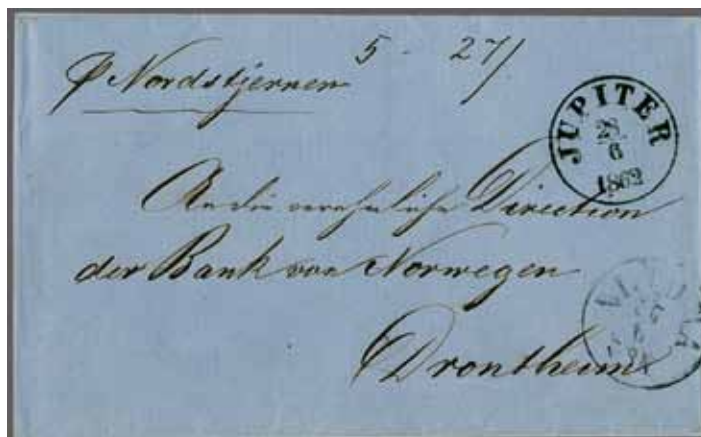 5 - 27/
p Nordstjernen
JUPITER
28
6
1862
An die verehrliche Direction
der Bank von Norwegen
Drontheim